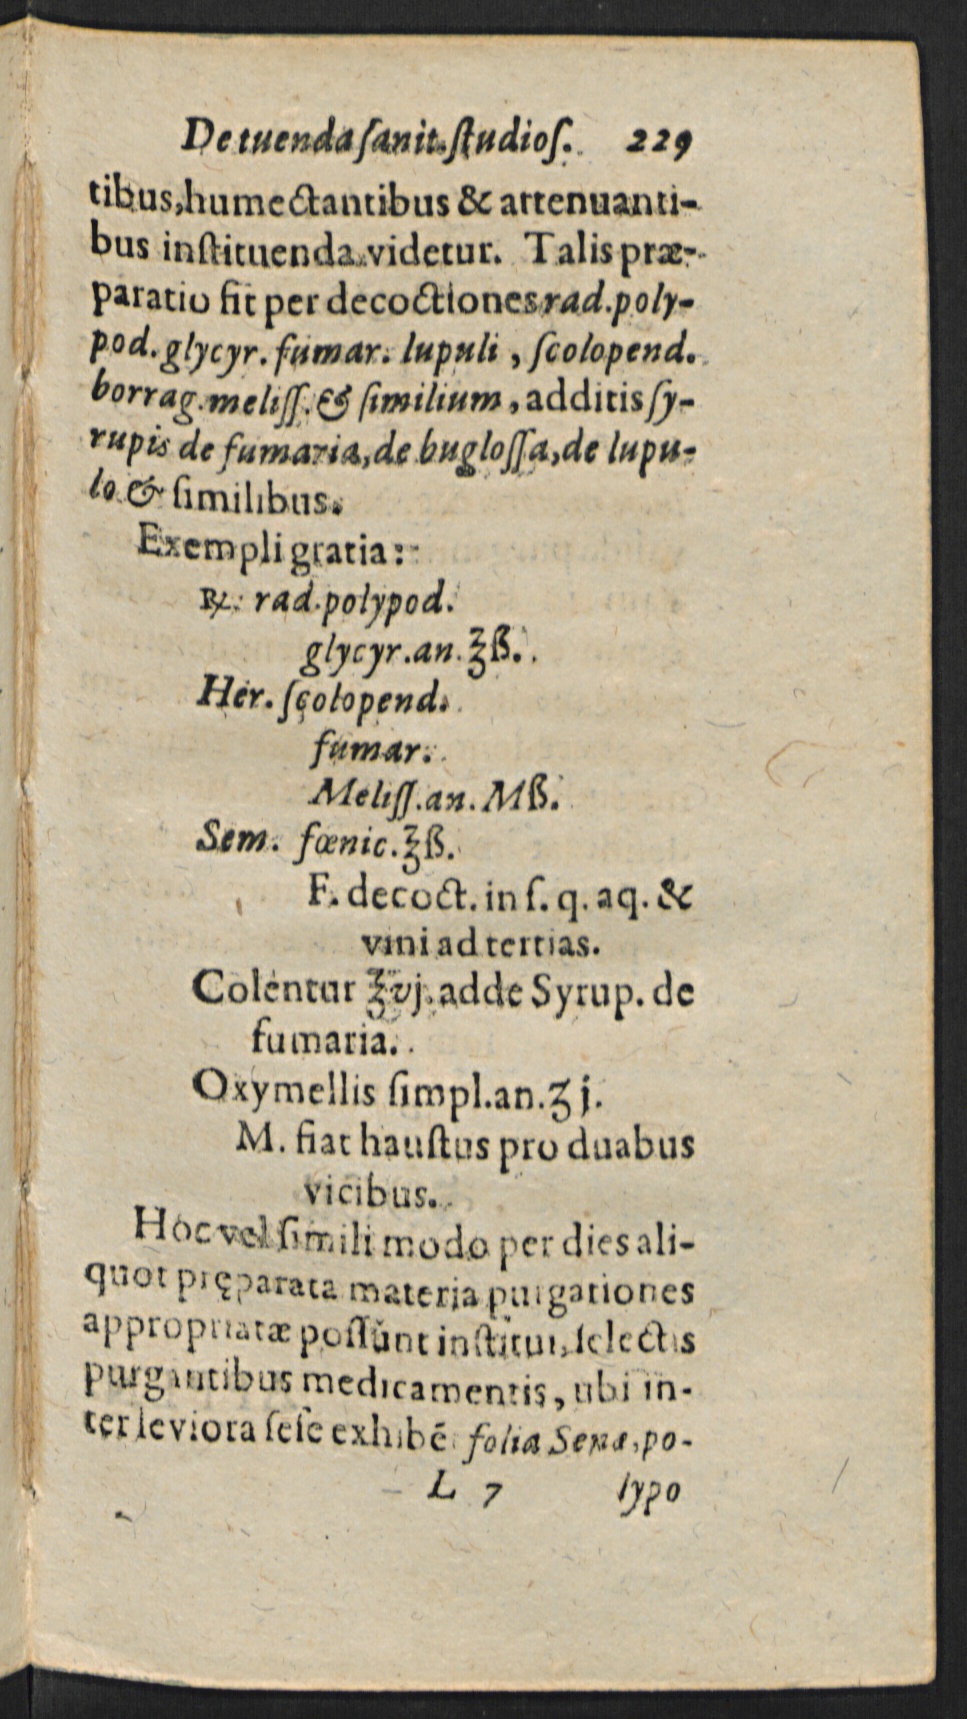 De tuenda ſanit. ſtudioſ. 229
tibus, humectantibus & attenuanti-
bus inſtituenda videtur. Talis præ-
paratio fit per decoctiones rad. poly-
pod. glycyr. fumar. lupuli, ſcolopend.
borrag. meliſſ. & ſimilium, additis ſy-
rupis de fumaria, de bugloſſa, de lupu-
lo & ſimilibus.
Exempli gratia:
℞. rad. polypod.
glycyr. an. ʒß.
Her. ſcolopend.
fumar.
Meliſſ. an. Mß.
Sem. fœnic. ʒß.
F. decoct. in ſ. q. aq. &
vini ad tertias.
Colentur ℥vj. adde Syrup. de
fumaria.
Oxymellis ſimpl. an. ʒ j.
M. fiat hauſtus pro duabus
vicibus.
Hoc vel ſimili modo per dies ali-
quot pręparata materia purgationes
appropriatæ poſſunt inſtitui, ſelectis
purgantibus medicamentis, ubi in-
ter leviora ſeſe exhibẽ. folia Senæ, po-
L 7 lypo